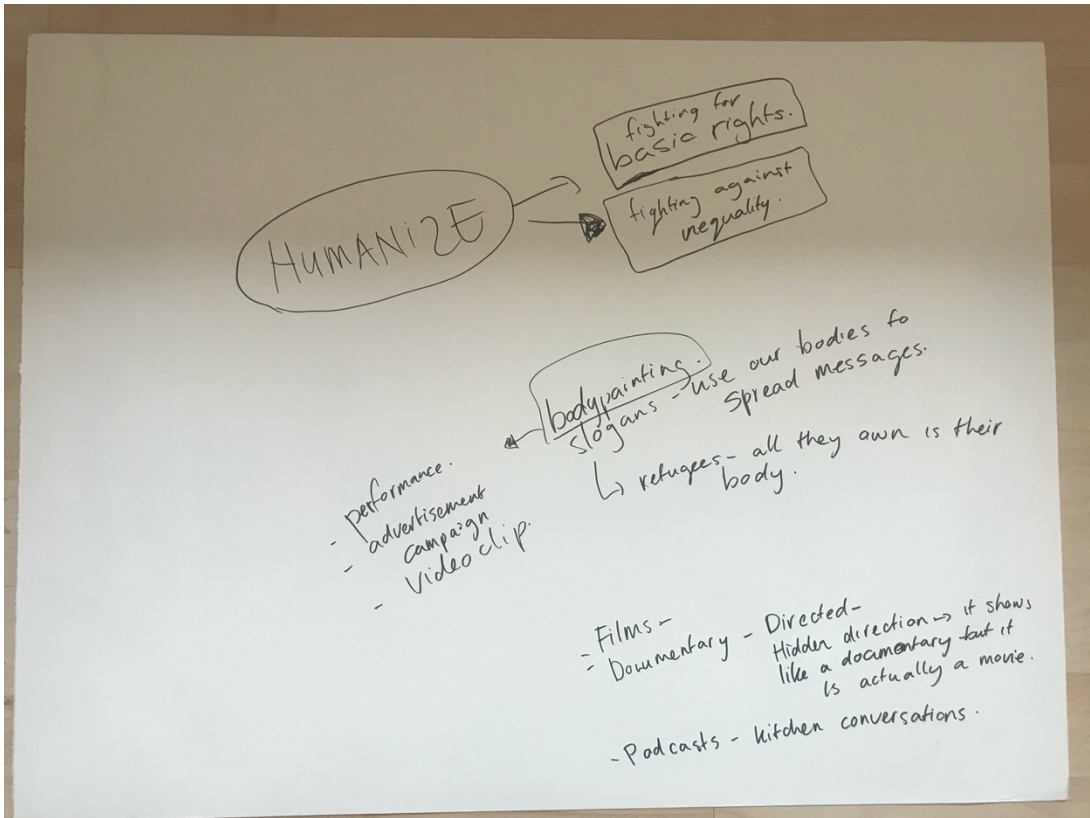 HUMANiZE
fighting for
basic rights.
fighting against
inequality.
bodypainting.
slogans - use our bodies to
spread messages.
↳ refugees - all they own is their
body.
- performance.
- advertisement
campaign
- video clip.
- Films -
- Documentary - Directed -
Hidden direction → it shows
like a documentary but it
is actually a movie.
- Podcasts - kitchen conversations.